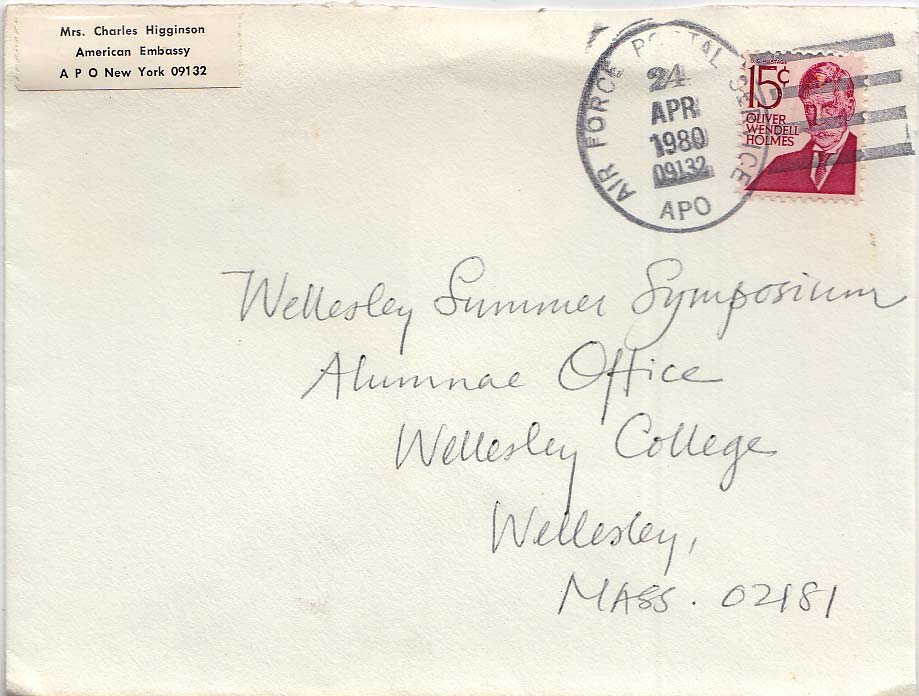 Mrs. Charles Higginson
American Embassy
A P O New York 09132
AIR FORCE POSTAL SERVICE
24
APR
1980
09132
APO
U.S. POSTAGE
15¢
OLIVER
WENDELL
HOLMES
Wellesley Summer Symposium
Alumnae Office
Wellesley College
Wellesley,
MASS. 02181